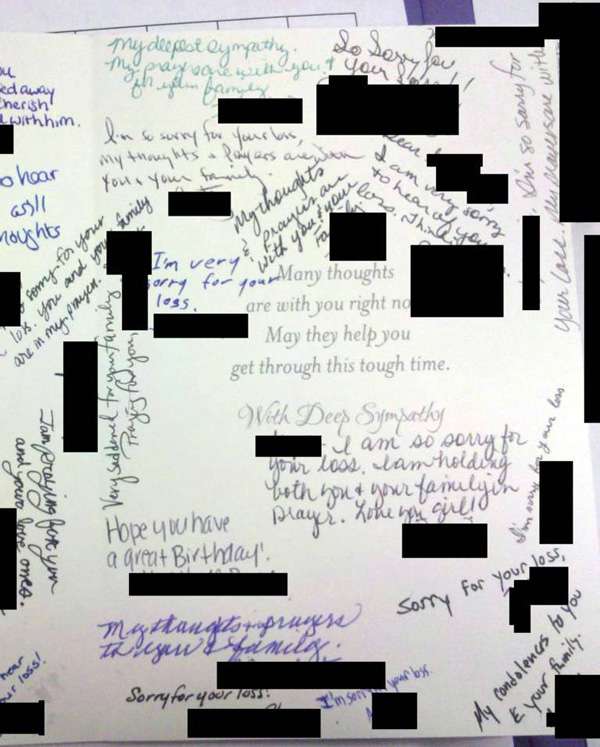 My deepest sympathy.
My prayers are with you &
for your family
So Sorry for
your Loss!!
I'm so sorry for your loss,
my thoughts & Prayers are with
you & your family.
Dear
I am very sorry
to hear of your
loss. Thinking
I'm so sorry for
your loss. My prayers are with
ed away
cherish
with him.
o hear
as//
noughts
My thoughts
& prayers are
with you & your
sorry for your
loss. you and your family
are in my prayers.
I'm very
sorry for your
loss.
Many thoughts
are with you right no
May they help you
get through this tough time.
With Deep Sympathy
Very saddened for your family
Praying for you
I am so sorry for
your loss. I am holding
both you & your family in
prayer. Love you girl!
I'm sorry for your loss
I am praying for you
and your love ones.
Hope you have
a great Birthday!
Sorry for your loss,
My thoughts & prayers
to you & family.
My condolences to you
& your family.
hear
our loss!
Sorry for your loss!
I'm sorry your loss.